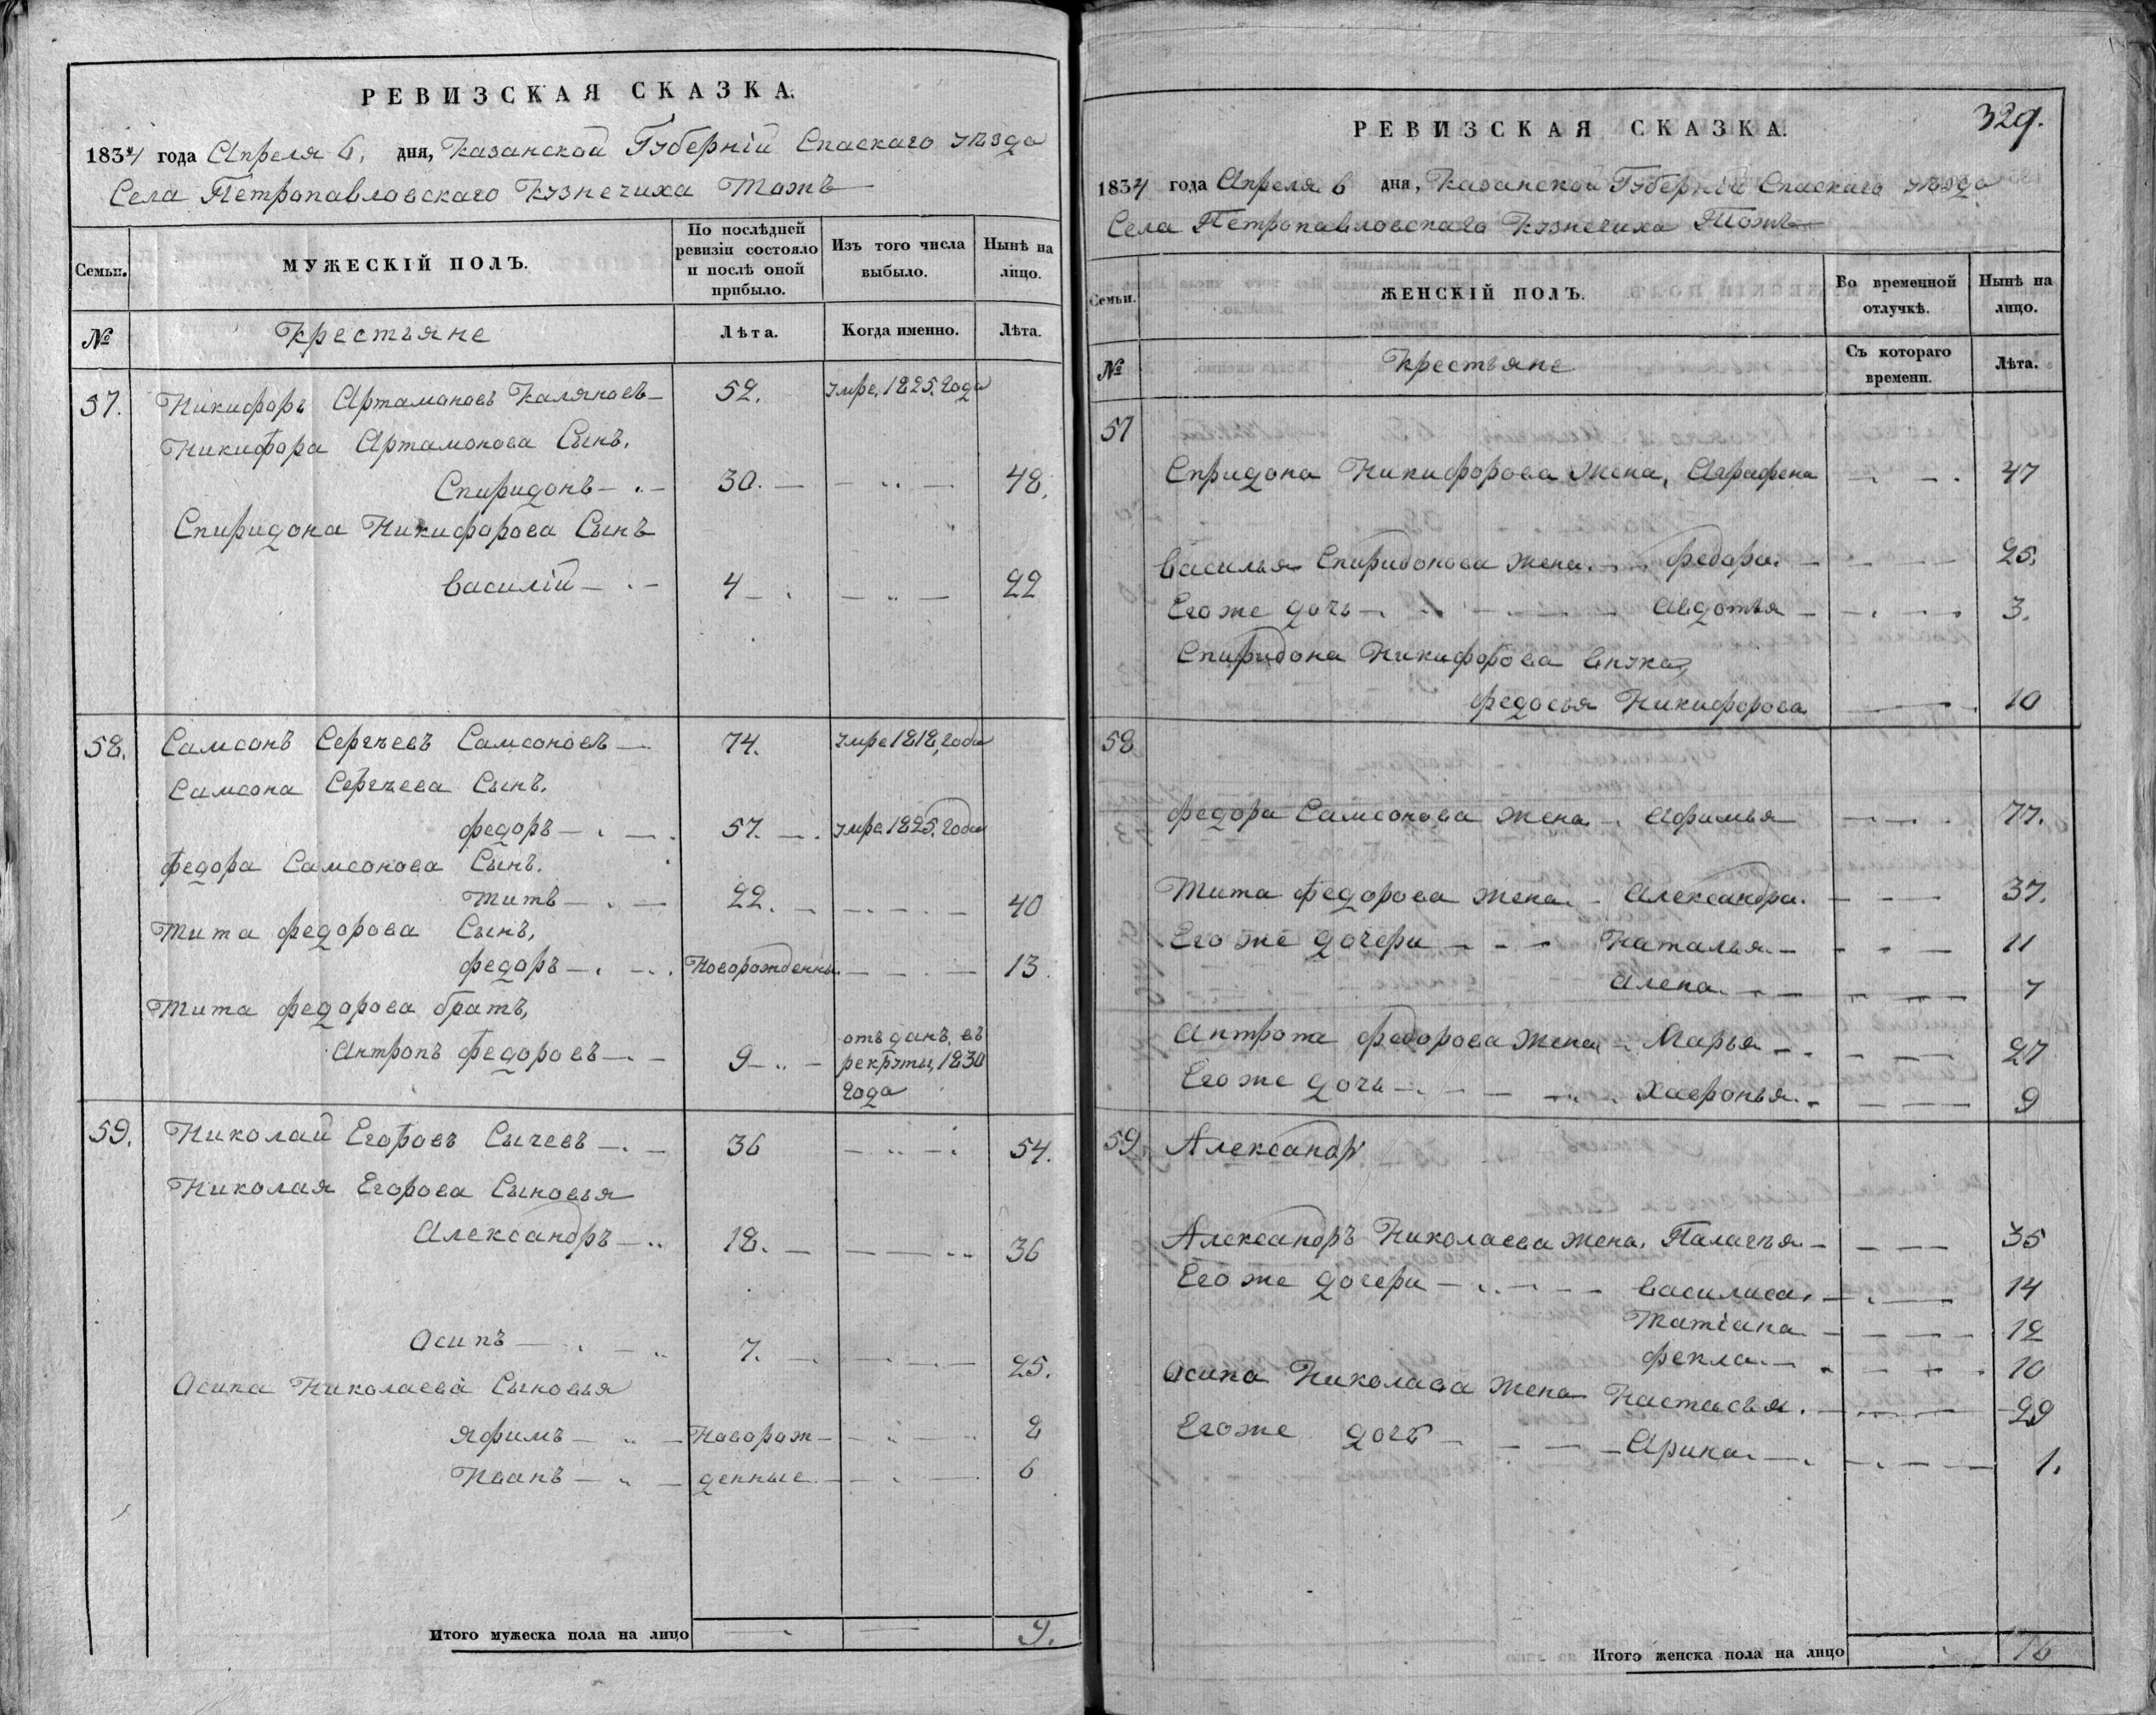 РЕВИЗСКАЯ СКАЗКА.
1834 года Апреля 6, дня, Казанской Губерніи Спаскаго уѣзда
Села Петропавловскаго Кузнечиха Тожъ
Семьи.
МУЖЕСКІЙ ПОЛЪ.
По послѣдней ревизіи состояло и послѣ оной прибыло.
Изъ того числа выбыло.
Нынѣ на лицо.
№ Крестьяне Лѣта. Когда именно. Лѣта.
57. Никифоръ Артамоновъ Каляновъ 52. умре, 1825, года
Никифора Артамонова Сынъ,
Спиридонъ 30. 48.
Спиридона Никифорова Сынъ
Василій 4 22
58. Самсонъ Сергѣевъ Самсоновъ 74. умре 1818, года
Самсона Сергѣева Сынъ,
Федоръ 57. умре 1825, года
Федора Самсонова Сынъ.
Титъ 22. 40
Тита Федорова Сынъ,
Федоръ Новорожденны 13
Тита Федорова братъ,
Антропъ Федоровъ 9 отъ данъ, въ
рекруты, 1830
года
59. Николай Егоровъ Сычевъ 36 54.
Николая Егорова Сыновья
Александръ 18. 36
Осипъ 7. 25.
Осипа Николаева Сыновья
Яфимъ Новорож- 2
Иванъ денные 6
Итого мужеска пола на лицо 9.
329.
РЕВИЗСКАЯ СКАЗКА.
1834 года Апреля 6 дня, Казанской Губерніи Спаскаго уѣзда
Села Петропавловскаго Кузнечиха Тожъ
Семьи.
ЖЕНСКІЙ ПОЛЪ.
Во временной отлучкѣ.
Нынѣ на лицо.
№ Крестьяне Съ котораго времени. Лѣта.
57
Спридона Никифорова жена, Аграфена 47
Василья Спиридонова жена Федора 25.
Его же дочь Авдотья 3.
Спиридона Никифорова внука,
Федосья Никифорова 10
58
Федора Самсонова жена Афимья 77.
Тита Федорова жена Александра 37.
Его же дочери Наталья 11
Алена 7
Антропа Федорова жена Марья 27
Его же дочь Хавронья 9
59. Александр
Александръ Николаева жена, Палагѣя 35
Его же дочери Василиса 14
Татіана 12
Фекла 10
Осипа Николава жена Настасья 29
Его же дочь Арина 1.
Итого женска пола на лицо 16